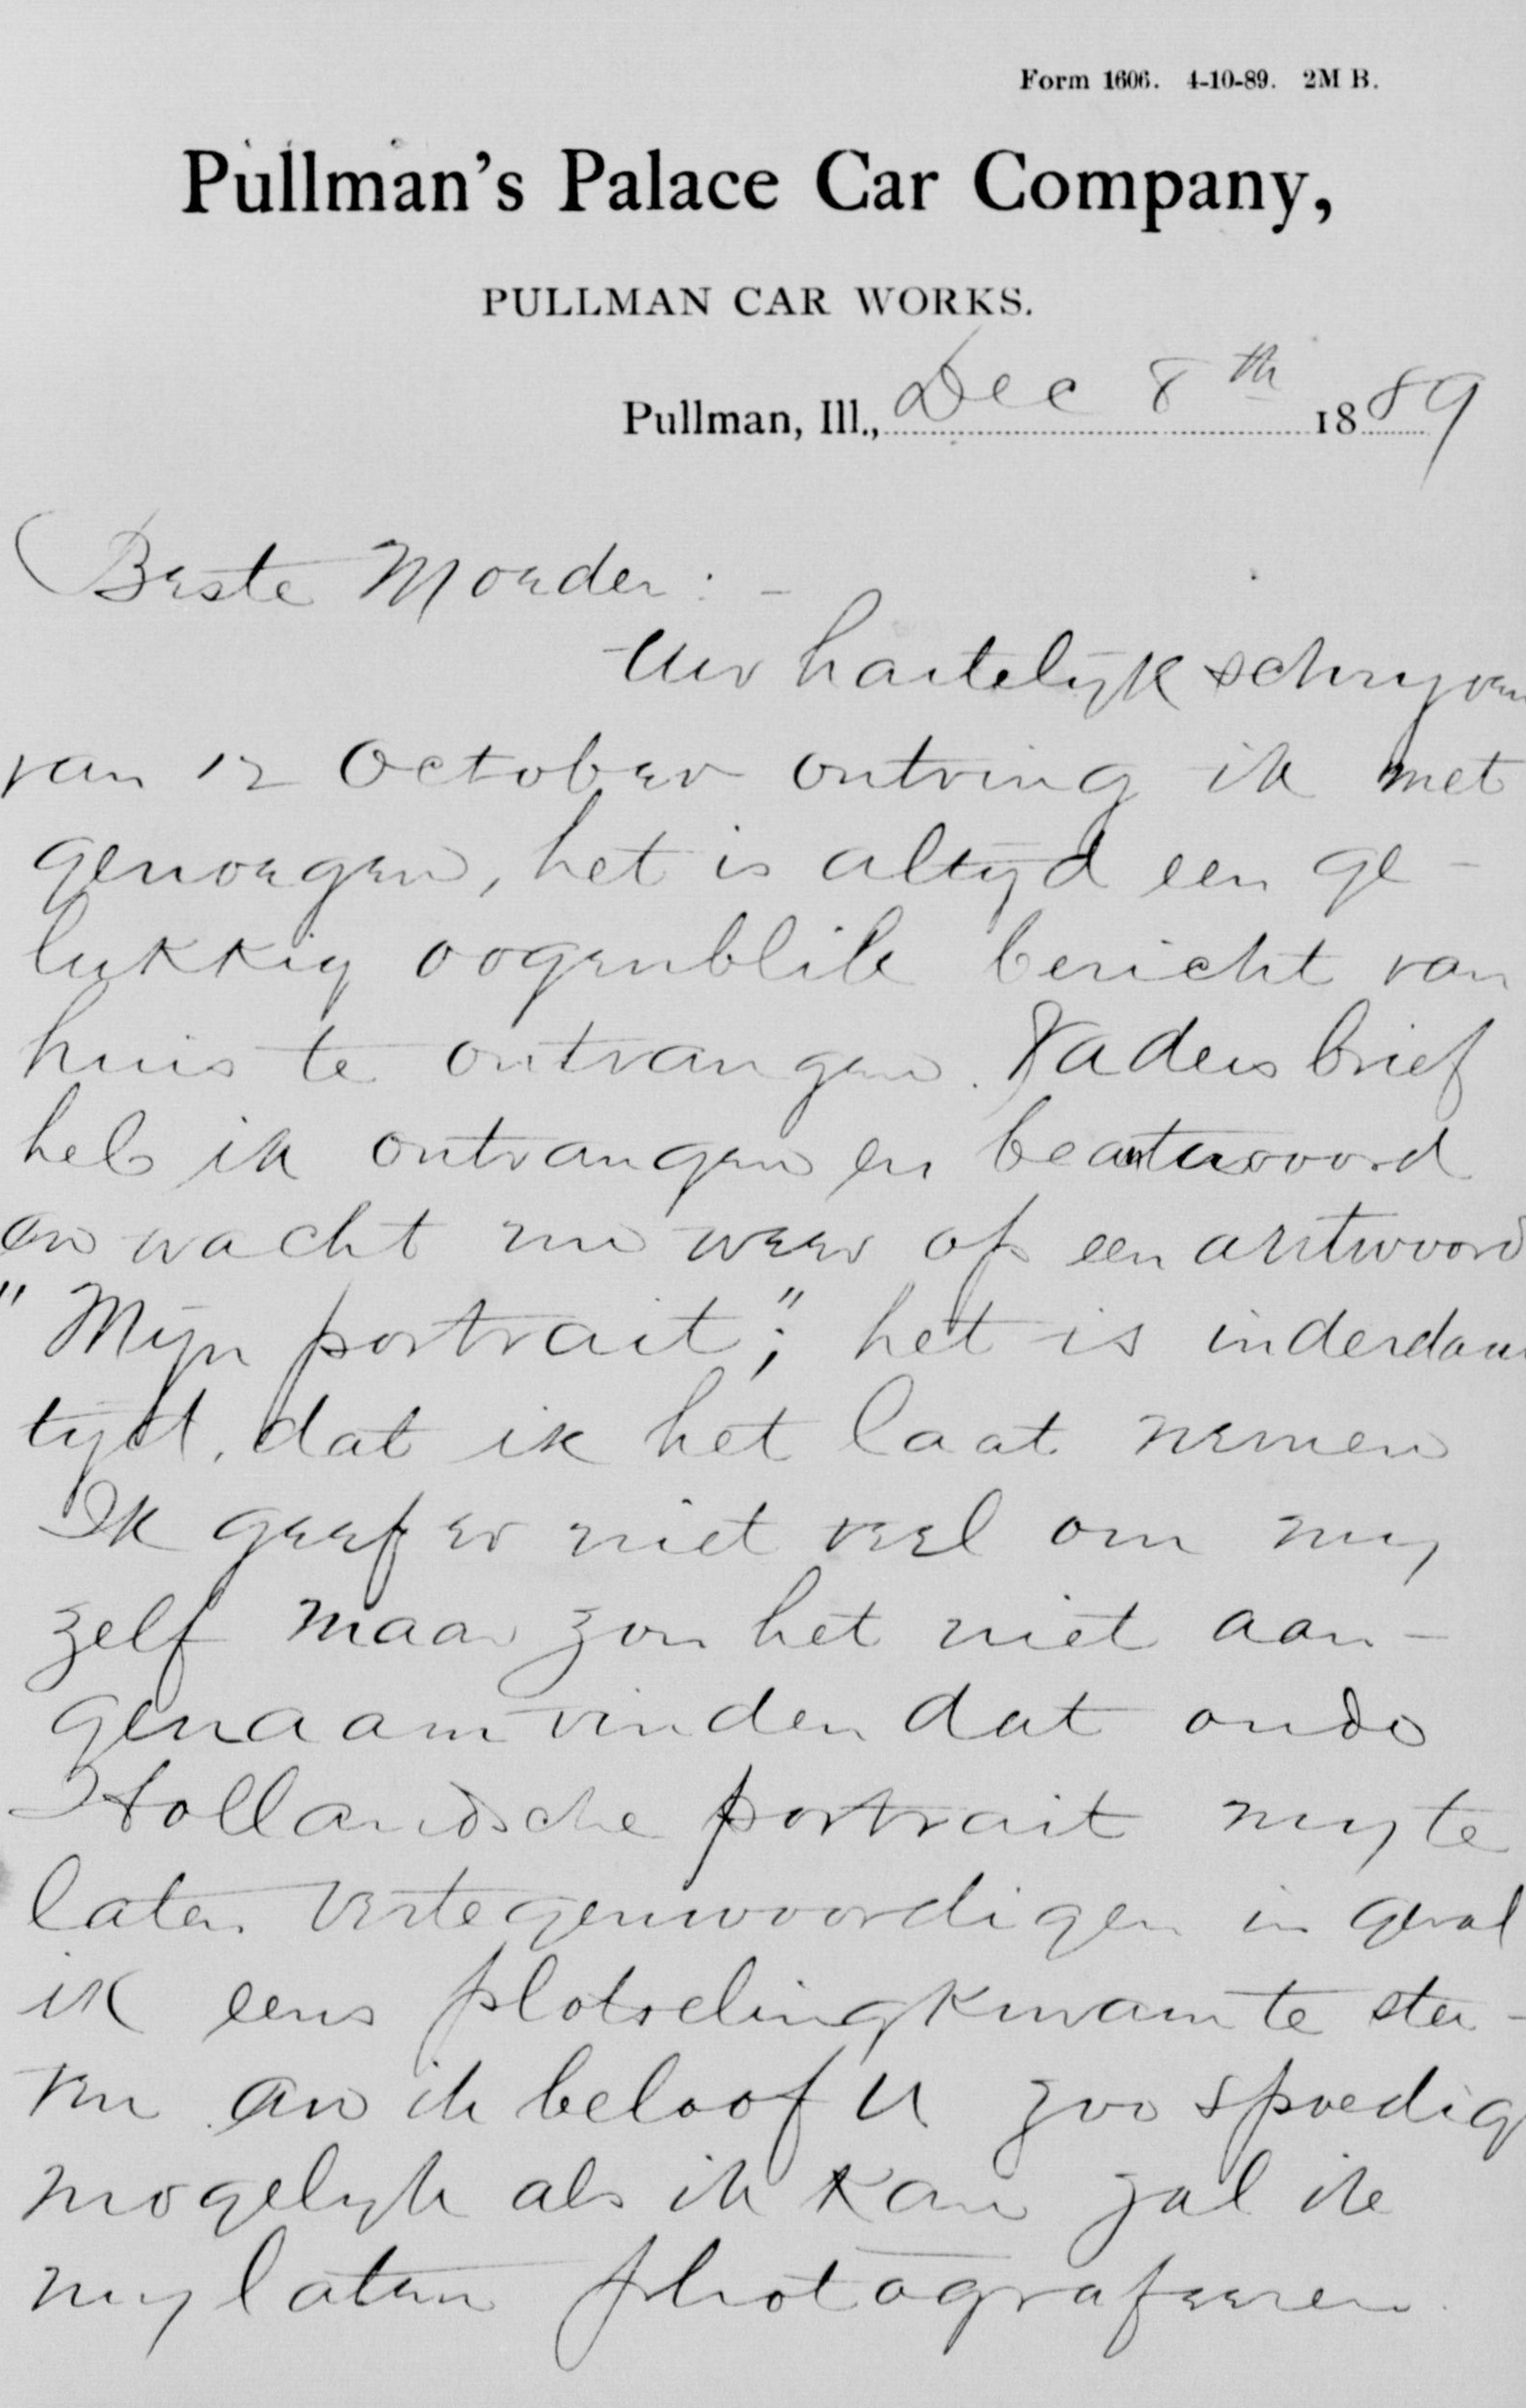 Form 1606. 4-10-89. 2M B.
Pullman's Palace Car Company,
PULLMAN CAR WORKS.
Pullman, Ill., Dec 8th 1889
Beste Moeder: -
Uw hartelijk schryven
van 12 October ontving ik met
genoegen, het is altyd een ge-
lukkig oogenblik bericht van
huis te ontvangen. Vaders brief
heb ik ontvangen en beantwoord
en wacht nu weer op een antwoord
"Mijn portrait"; het is inderdaad
tyd, dat ik het laat nemen
Ik geef er niet veel om my
zelf maar zou het niet aan-
genaam vinden dat oude
Hollandsche portrait my te
laten vertegenwoordigen in geval
ik eens plotseling kwam te ster-
ven en ik beloof U zoo spoedig
mogelyk als ik kan zal ik
my laten photografeeren.